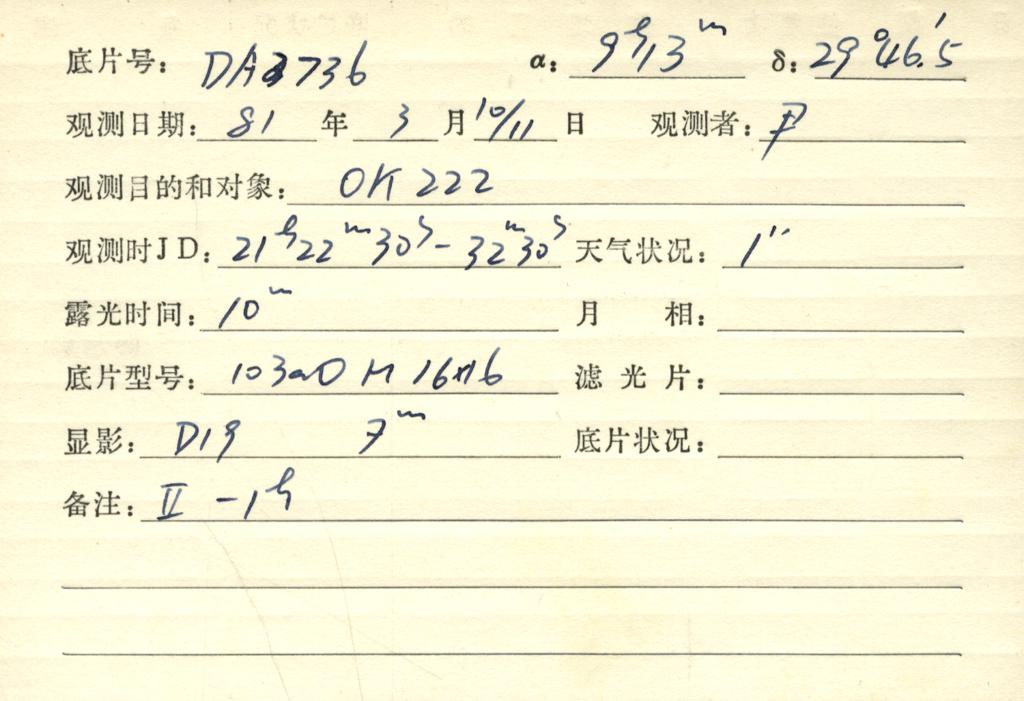 底片号: DA3736 α: 9ʰ13ᵐ δ: 29°46.'5
观测日期: 81 年 3 月 10/11 日 观测者: 尹
观测目的和对象: OK 222
观测时JD: 21ʰ22ᵐ30ˢ - 32ᵐ30ˢ 天气状况: 1"
露光时间: 10ᵐ 月 相:
底片型号: 103aO H 16×16 滤光片:
显影: D19 7ᵐ 底片状况:
备注: II -1ʰ